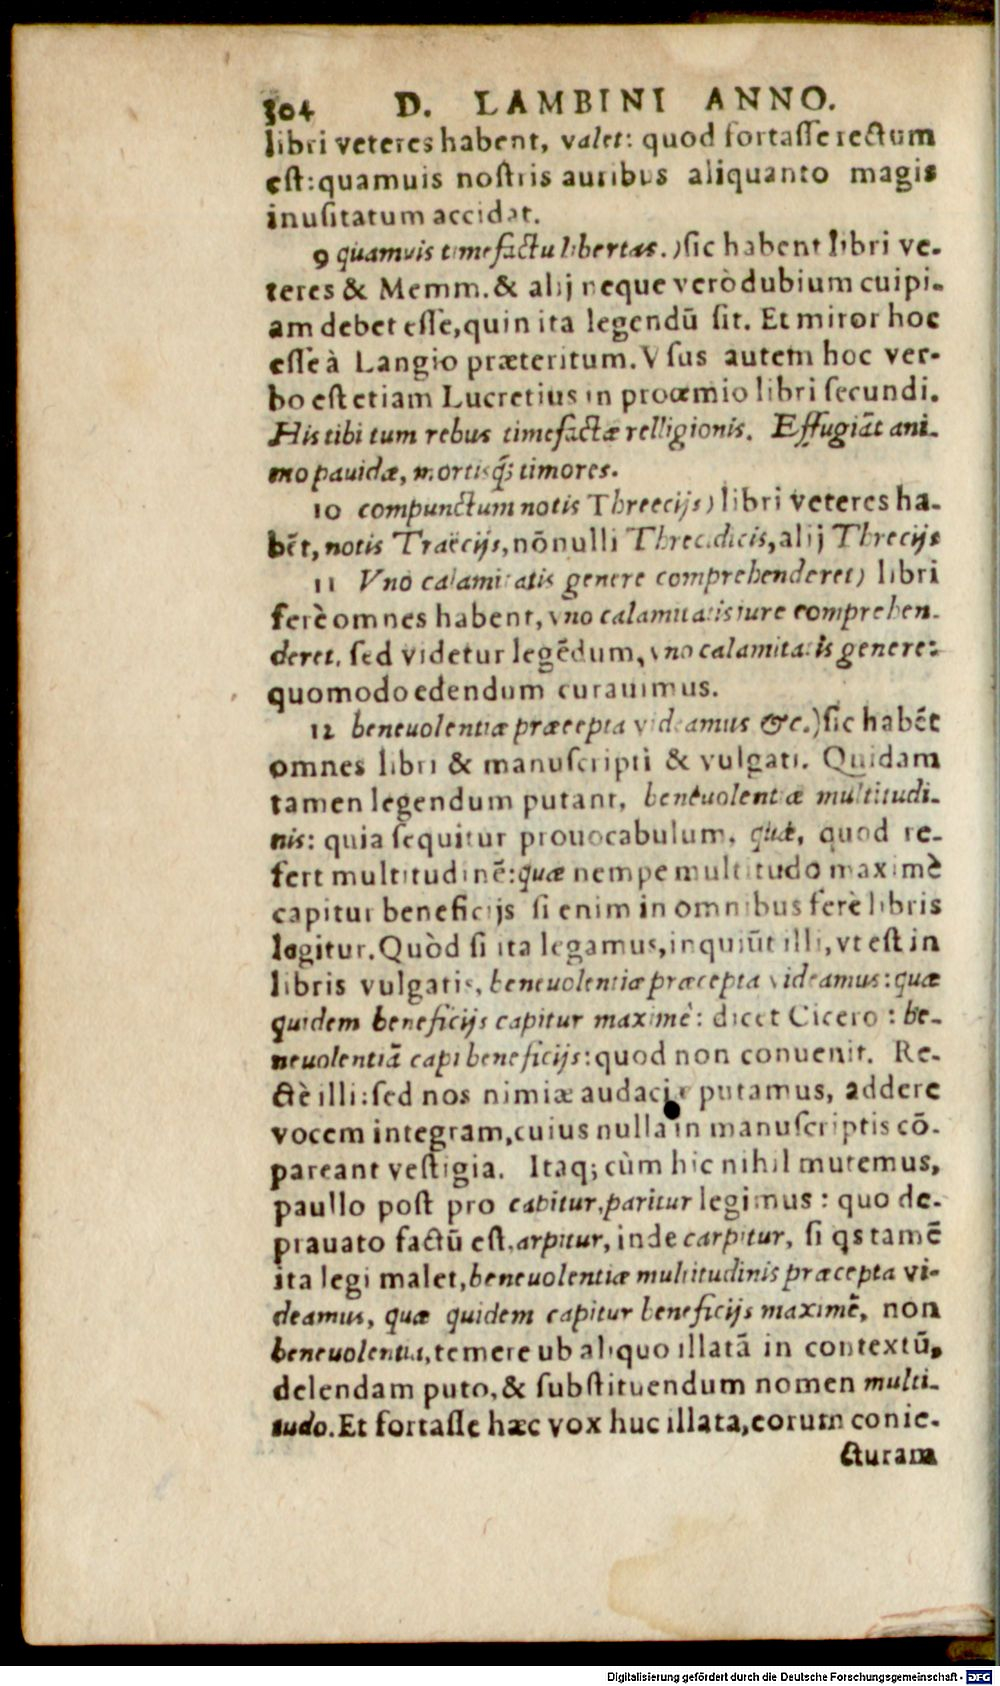 304 D. LAMBINI ANNO.
libri veteres habent, valet: quod fortaſſe rectum
eſt: quamuis noſtris auribus aliquanto magis
inuſitatum accidat.
9 quamuis timefactu libertas.) ſic habent libri ve-
teres & Memm. & alij neque verò dubium cuipi-
am debet eſſe, quin ita legendū ſit. Et miror hoc
eſſe à Langio præteritum. Vſus autem hoc ver-
bo eſt etiam Lucretius in proœmio libri ſecundi.
His tibi tum rebus timefactæ relligionis. Effugiāt ani-
mo pauidæ, mortisq́; timores.
10 compunctum notis Threecijs) libri veteres ha-
bēt, notis Traëcijs, nōnulli Threcidicis, alij Threcijs
11 Vno calamitatis genere comprehenderet) libri
ferè omnes habent, vno calamitatis iure comprehen-
deret. ſed videtur legēdum, vno calamitatis genere:
quomodo edendum curauimus.
12 beneuolentiæ præcepta videamus &c.) ſic habēt
omnes libri & manuſcripti & vulgati. Quidam
tamen legendum putant, beneuolentiæ multitudi-
nis: quia ſequitur prouocabulum, quæ, quod re-
fert multitudinē: quæ nempe multitudo maximè
capitur beneficijs ſi enim in omnibus ferè libris
legitur. Quòd ſi ita legamus, inquiūt illi, vt eſt in
libris vulgatis, beneuolentiæ præcepta videamus: quæ
quidem beneficijs capitur maximè: dicet Cicero: be-
neuolentiā capi beneficijs: quod non conuenit. Re-
ctè illi: ſed nos nimiæ audaciæ putamus, addere
vocem integram, cuius nulla in manuſcriptis cō-
pareant veſtigia. Itaq; cùm hic nihil mutemus,
paullo poſt pro capitur, paritur legimus: quo de-
prauato factū eſt, arpitur, inde carpitur, ſi qs tamē
ita legi malet, beneuolentiæ multitudinis præcepta vi-
deamus, quæ quidem capitur beneficijs maximē, non
beneuolentia, temere ub aliquo illatā in contextū,
delendam puto, & ſubſtituendum nomen multi-
tudo. Et fortaſſe hæc vox huc illata, eorum conie-
cturam
Digitalisierung gefördert durch die Deutsche Forschungsgemeinschaft - DFG